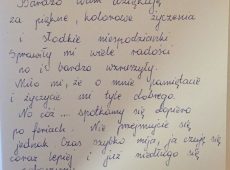 Bardzo Wam dziękuję
za piękne, kolorowe życzenia
i słodkie niespodzianki
Sprawiły mi wiele radości
no i bardzo wzruszyły.
Miło mi, że o mnie pamiętacie
i życzycie mi tyle dobrego.
No cóż ... spotkamy się dopiero
po feriach. Nie przejmujcie się
jednak czas szybko mija, ja czuję się
coraz lepiej i już niedługo się